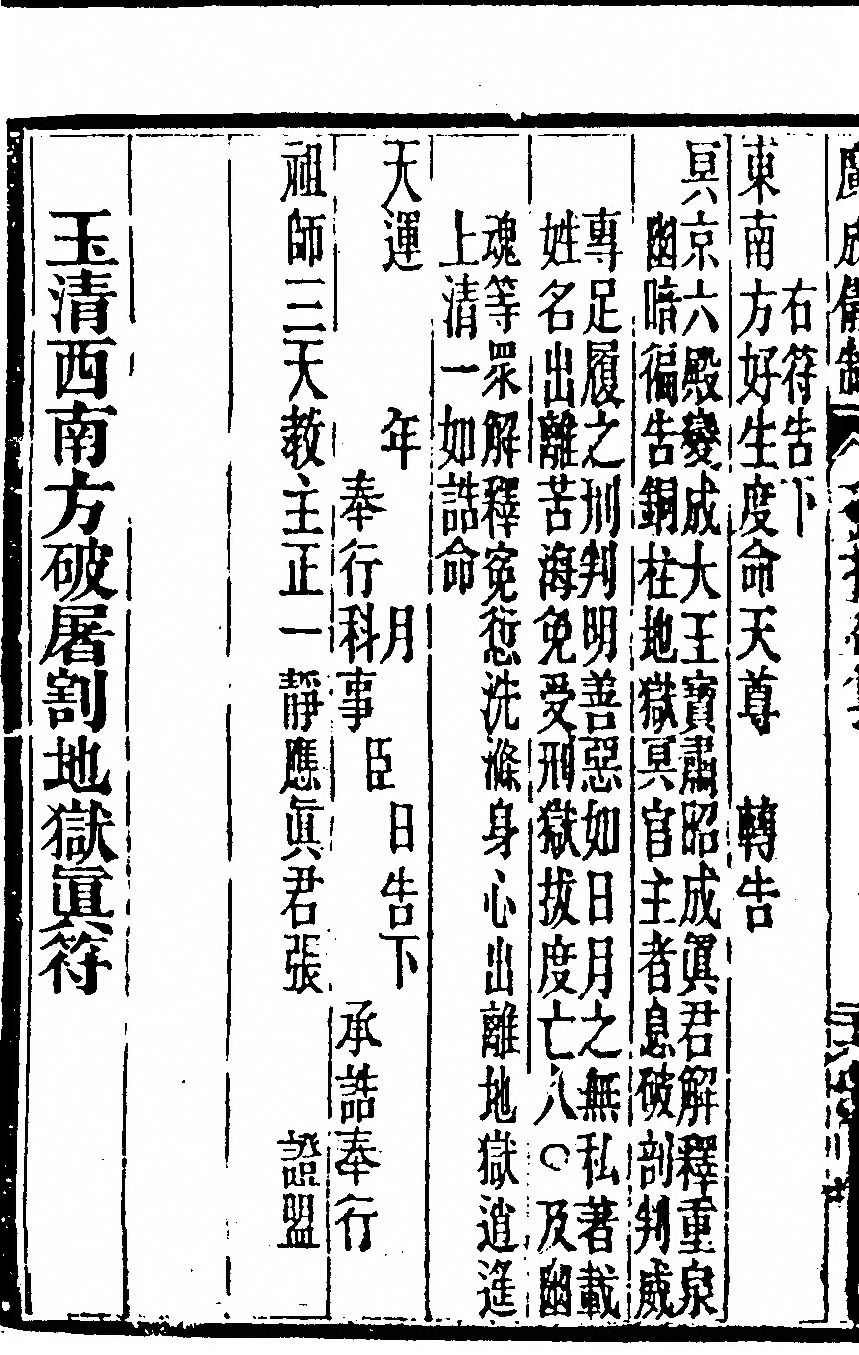 廣成儀制
右符告下
東南方好生度命天尊　轉告
冥京六殿變成大王寶肅昭成眞君解釋重泉
幽暗徧告銅柱地獄冥官主者息破剖判威
專足履之刑判明善惡如日月之無私著載
姓名出離苦海免受刑獄拔度亡八〇及幽
魂等眾解釋寃愆洗滌身心出離地獄逍遙
上清一如誥命
天運　年　月　日告下
奉行科事臣　承誥奉行
祖師三天教主正一靜應眞君張　證盟
玉清西南方破屠割地獄眞符